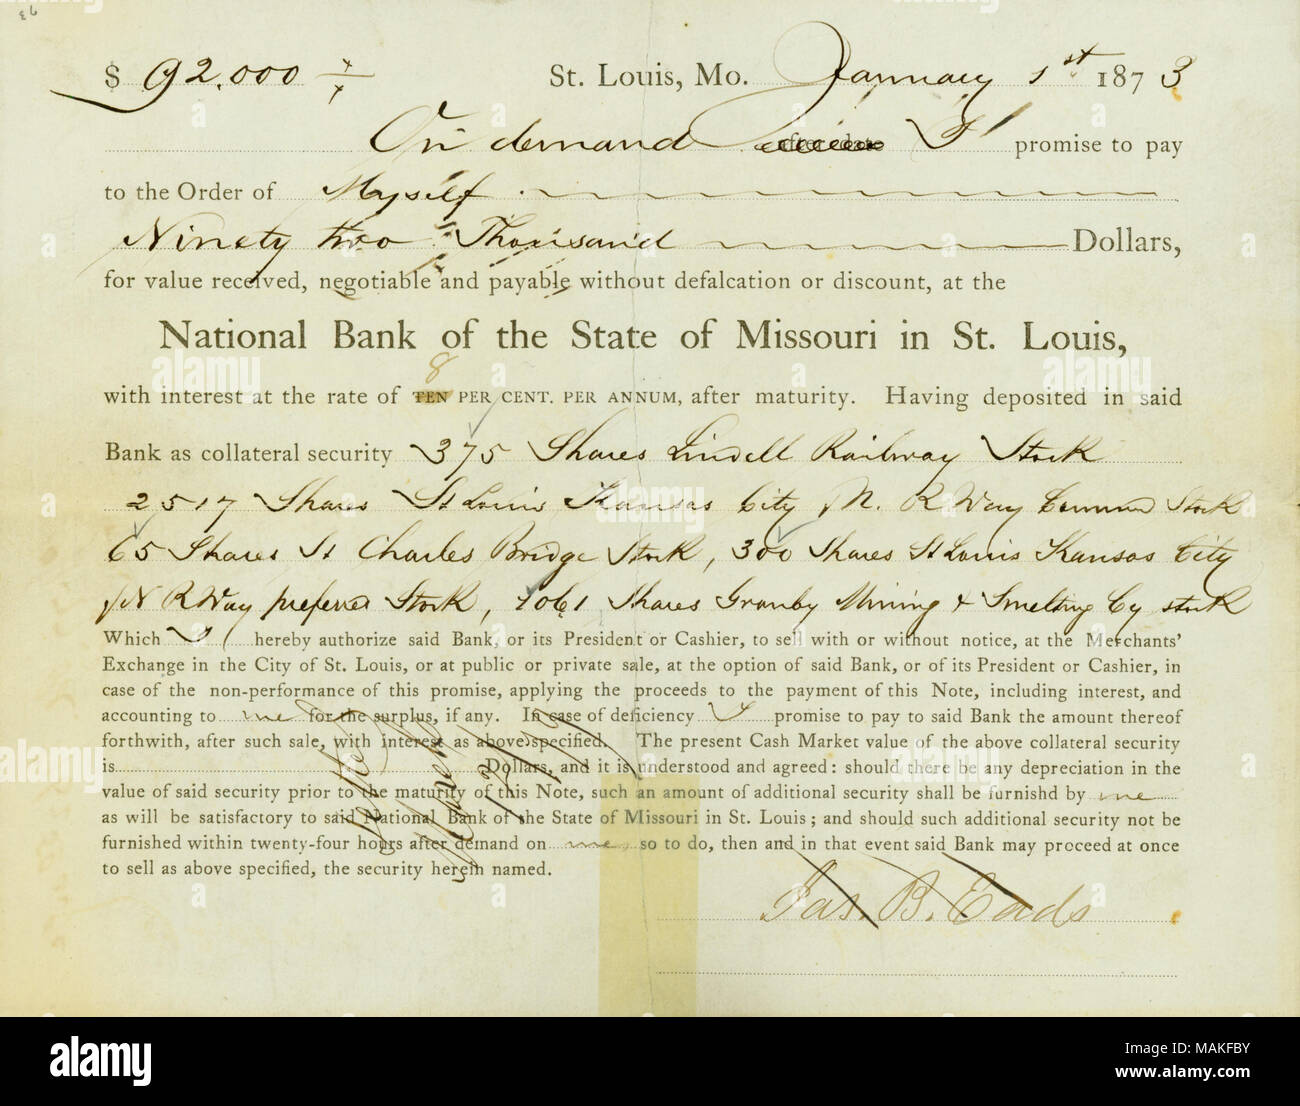 $ 92.000 St. Louis, Mo. January 1st 1873
On demand after date I promise to pay
to the Order of Myself
Ninety two Thousand Dollars,
for value received, negotiable and payable without defalcation or discount, at the
National Bank of the State of Missouri in St. Louis,
8
with interest at the rate of TEN PER CENT. PER ANNUM, after maturity. Having deposited in said
Bank as collateral security 375 Shares Lindell Railway Stock
2517 Shares St Louis Kansas City & N. R Way Common Stock
65 Shares St Charles Bridge Stock, 300 Shares St Louis Kansas City
& N R Way preferred Stock, 1061 Shares Granby Mining & Smelting Cy stock
Which I hereby authorize said Bank, or its President or Cashier, to sell with or without notice, at the Merchants'
Exchange in the City of St. Louis, or at public or private sale, at the option of said Bank, or of its President or Cashier, in
case of the non-performance of this promise, applying the proceeds to the payment of this Note, including interest, and
accounting to me for the surplus, if any. In case of deficiency I promise to pay to said Bank the amount thereof
forthwith, after such sale, with interest as above specified. The present Cash Market value of the above collateral security
is Dollars, and it is understood and agreed: should there be any depreciation in the
value of said security prior to the maturity of this Note, such an amount of additional security shall be furnishd by me
as will be satisfactory to said National Bank of the State of Missouri in St. Louis; and should such additional security not be
furnished within twenty-four hours after demand on me so to do, then and in that event said Bank may proceed at once
to sell as above specified, the security herein named.
Jas. B. Eads
alamy
Image ID: MAKFBY
www.alamy.com